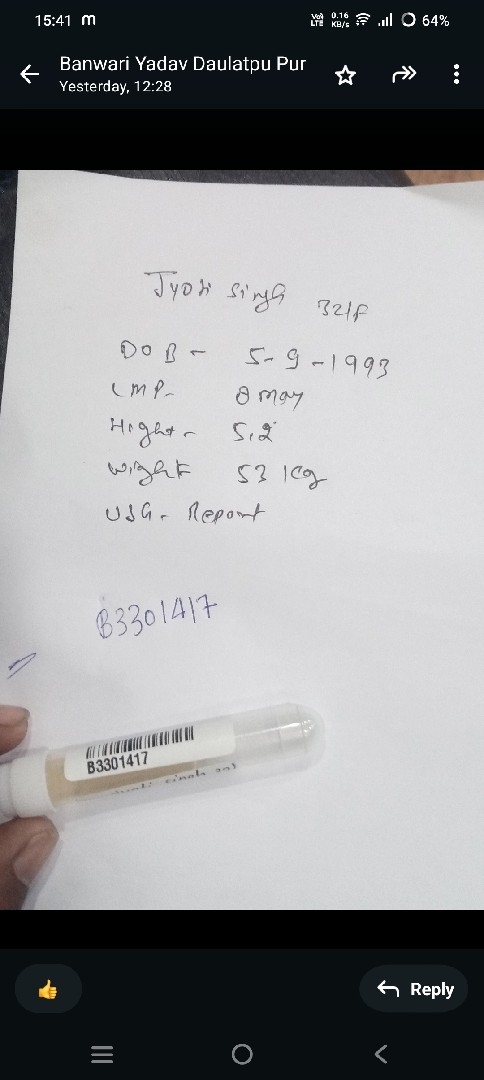 15:41 m VoD LTE 0.16 KB/s 64%
Banwari Yadav Daulatpu Pur
Yesterday, 12:28
Jyoti Singh 32/F
DOB - 5-9-1993
LMP- 8 may
Hight- 5.2
Wight 53 kg
USG. Report
B3301417
B3301417
Reply